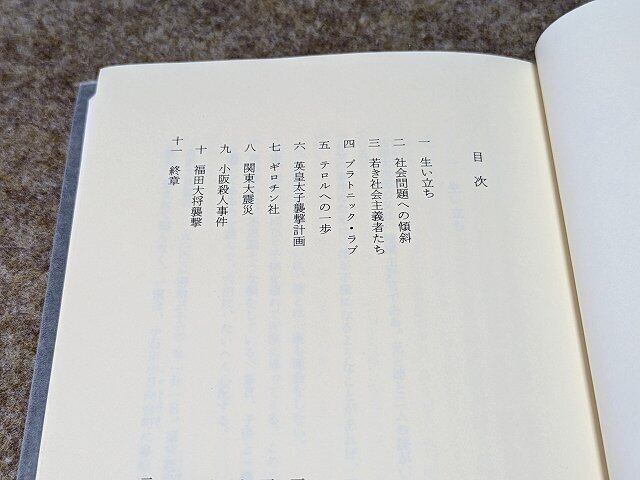 目次
一 生い立ち
二 社会問題への傾斜
三 若き社会主義者たち
四 プラトニック・ラブ
五 テロルへの一歩
六 英皇太子襲撃計画
七 ギロチン社
八 関東大震災
九 小阪殺人事件
十 福田大将襲撃
十一 終章